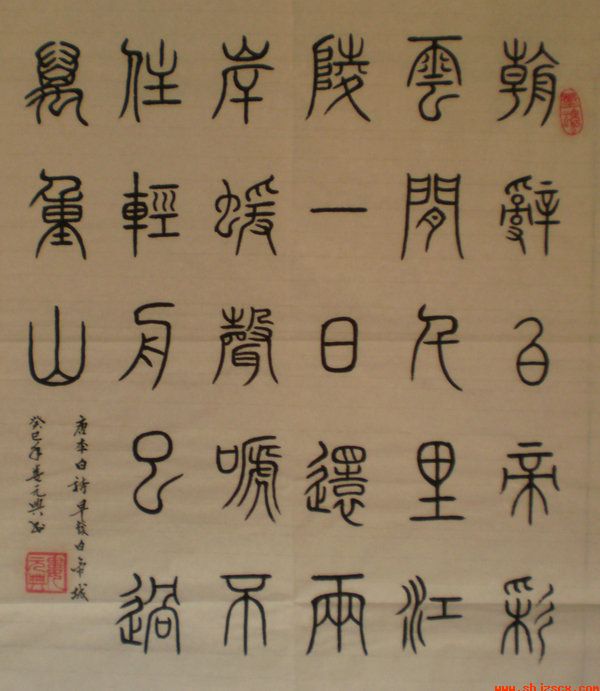 朝辭白帝彩
雲間千里江
陵一日還兩
岸蝯聲嗁不
住輕舟已過
萬重山
唐李白詩早發白帝城
癸巳年姜元興書